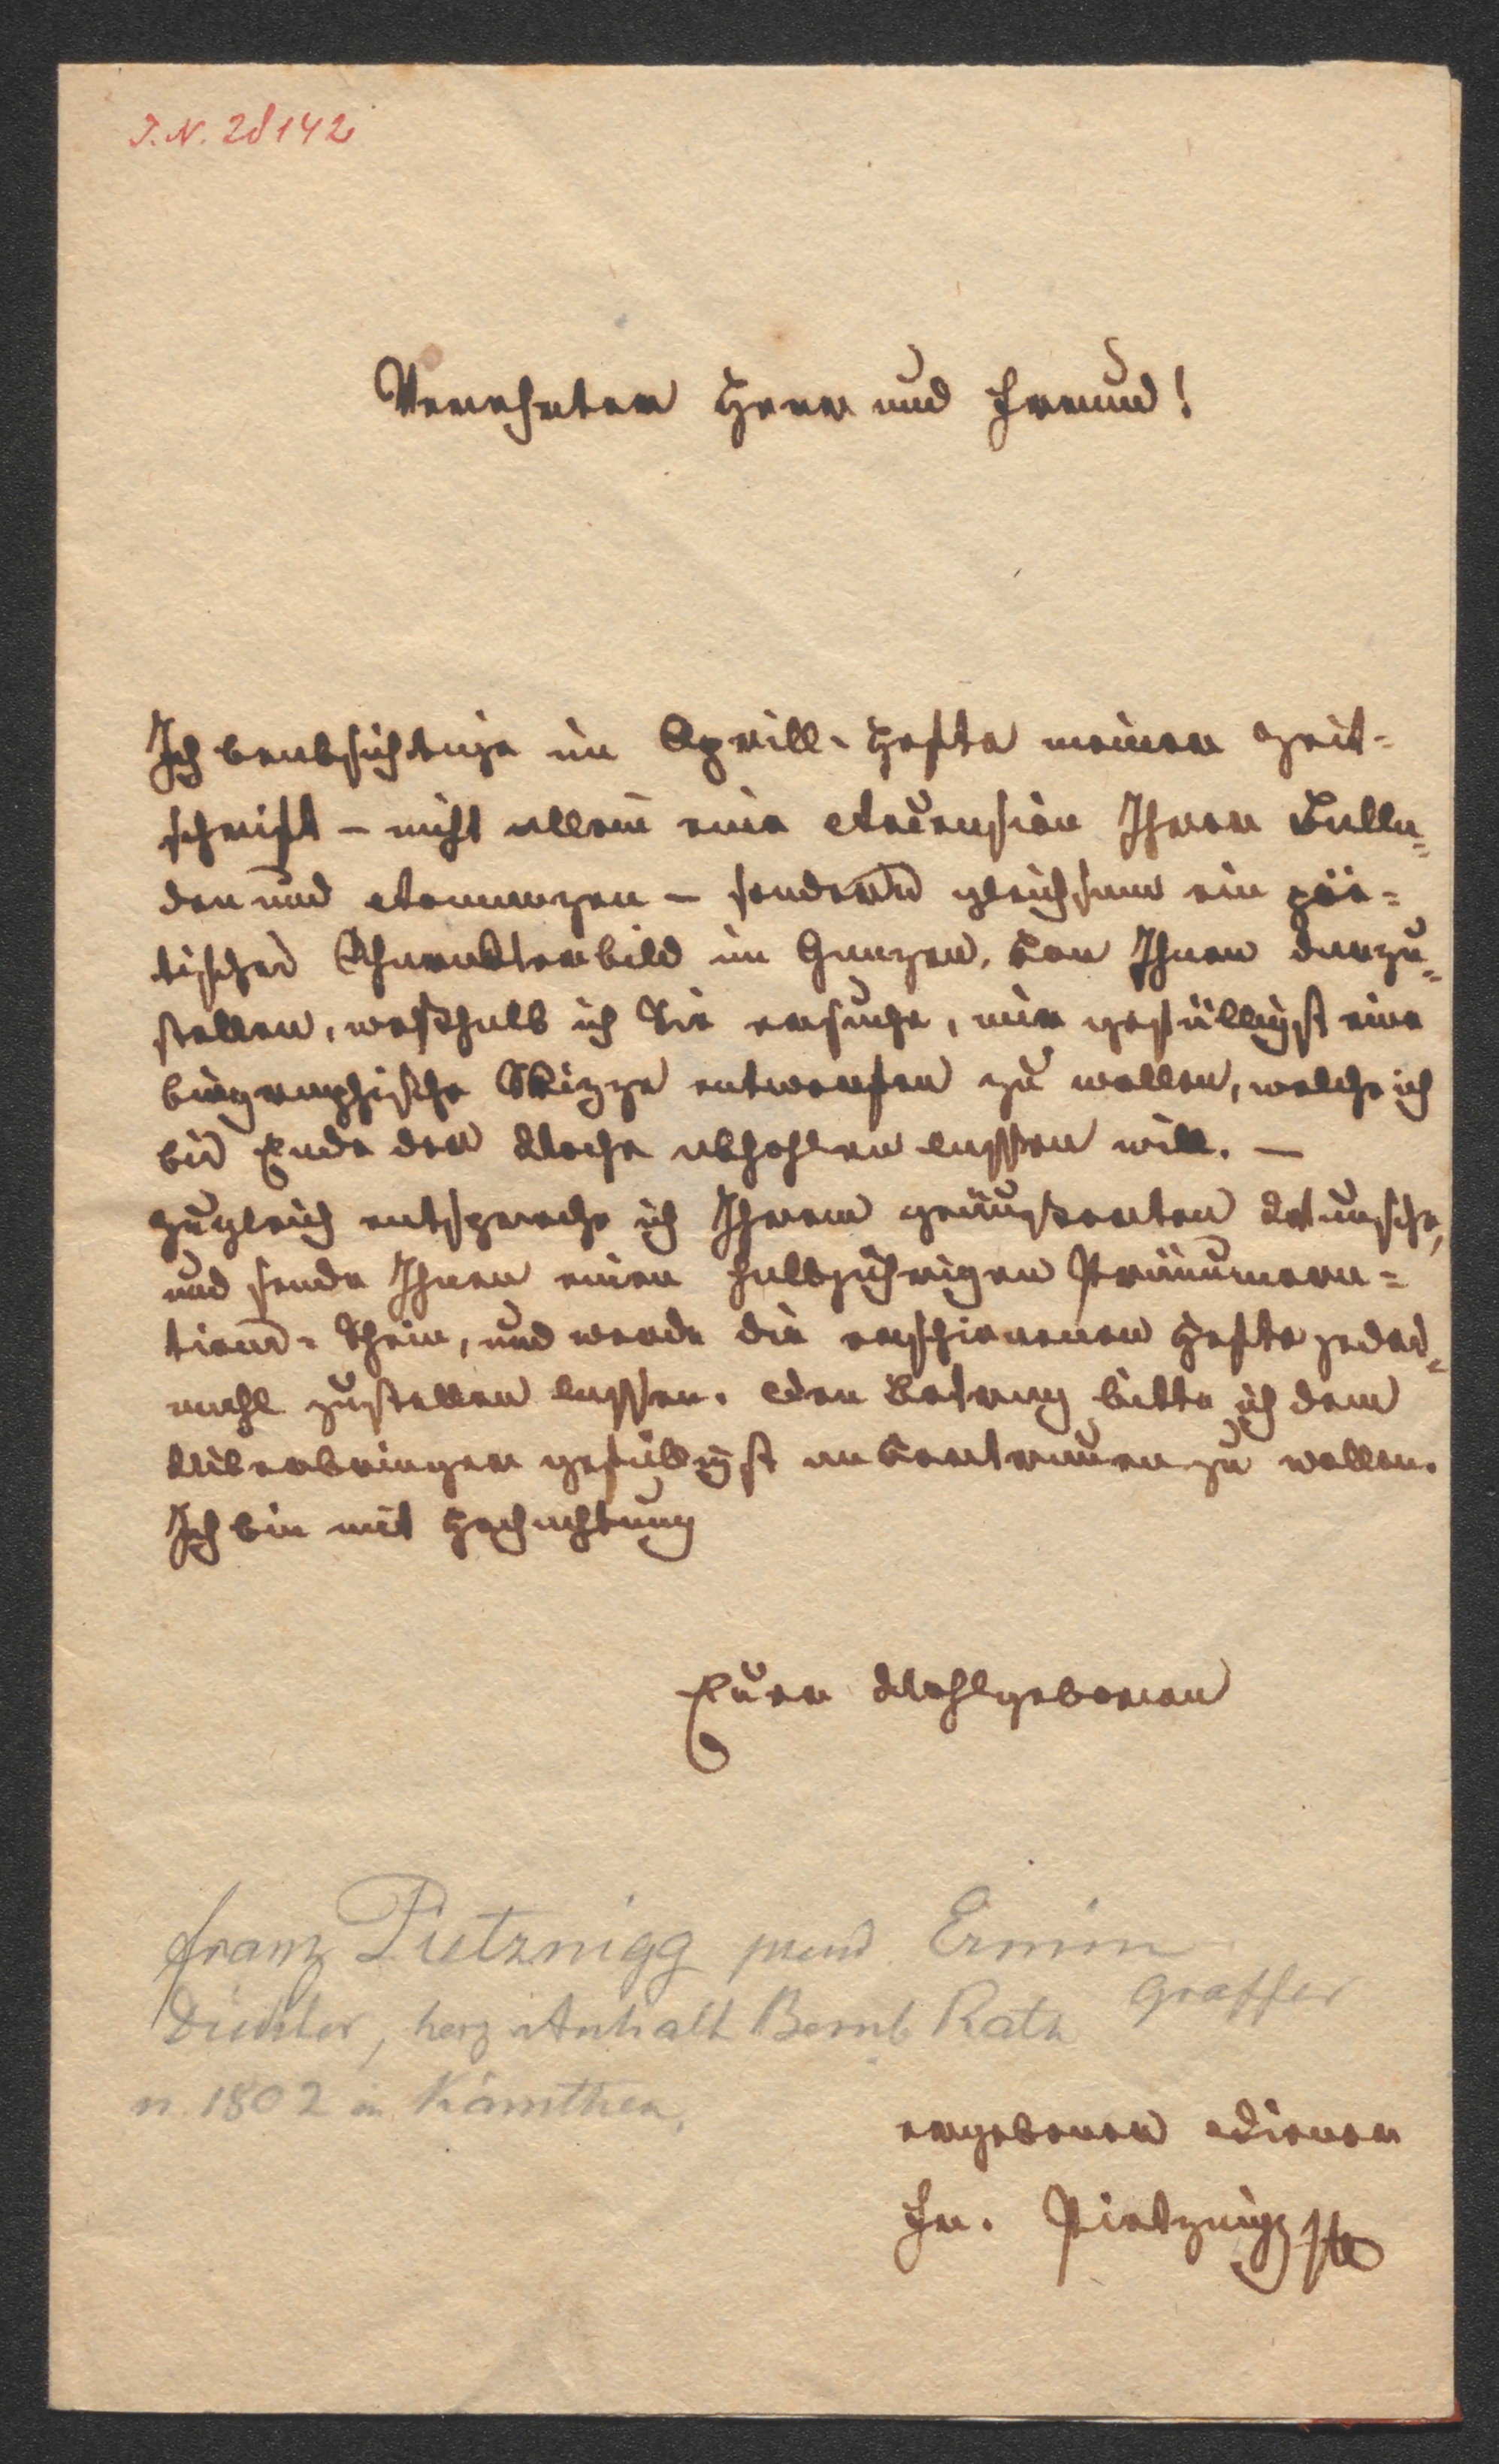 I. N. 28142
Verehrter Herr und Freund!
Ich beabsichtige im Aprill-Hefte meiner Zeit-
schrift – nicht allein eine Recension Ihrer Balla-
den und Romanzen – sondern gleichsam ein poë-
tisches Charakterbild im Ganzen, von Ihnen darzu-
stellen, weßhalb ich Sie ersuche, mir gefälligst eine
biographische Skizze entwerfen zu wollen, welche ich
bis Ende der Woche abhohlen lassen will. –
Zugleich entspreche ich Ihrem geäußerten Wunsche,
und sende Ihnen einen halbjährigen Pränumera-
tions-Schein, und werde die erschienenen Hefte jedes-
mahl zustellen lassen. Den Betrag bitte ich dem
Überbringer gefälligst anvertrauen zu wollen.
Ich bin mit Hochachtung
Euer Wohlgeboren
Franz Pietznigg pseud. Ermin
Gräffer
Dichter, herz Anhalt Bernb Rath
n. 1802 in Kärnthen,
ergebener Diener
Fr. Pietznigg